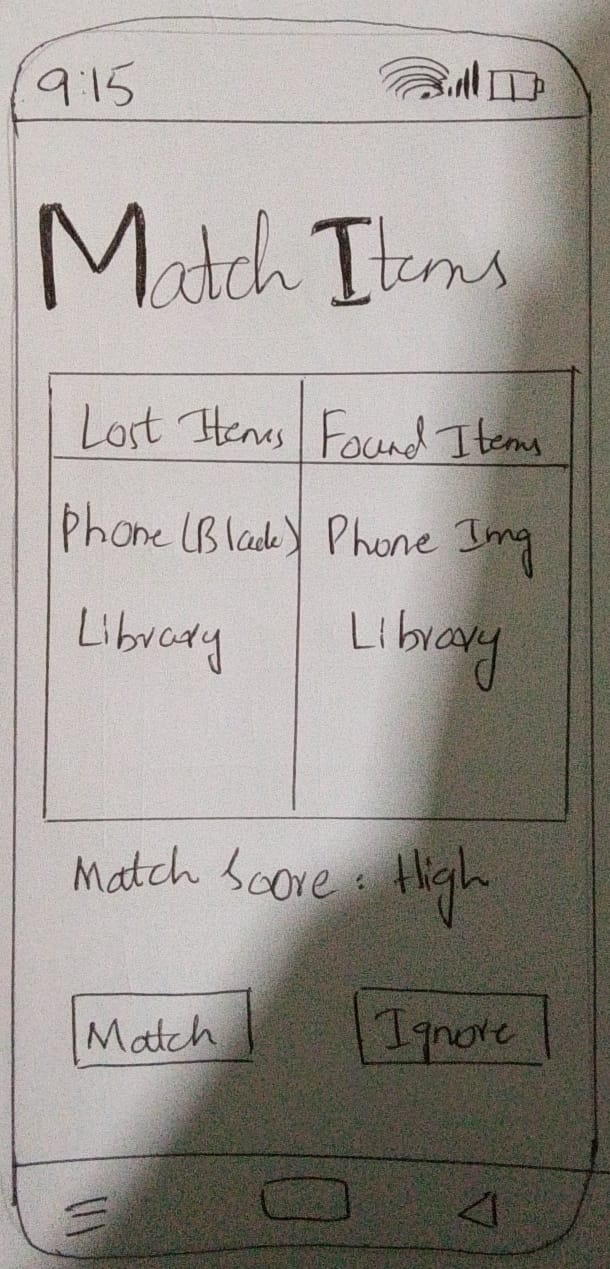 9:15
Match Items
Lost Items Found Items
Phone (Black) Phone Img
Library Library
Match Score: High
Match Ignore